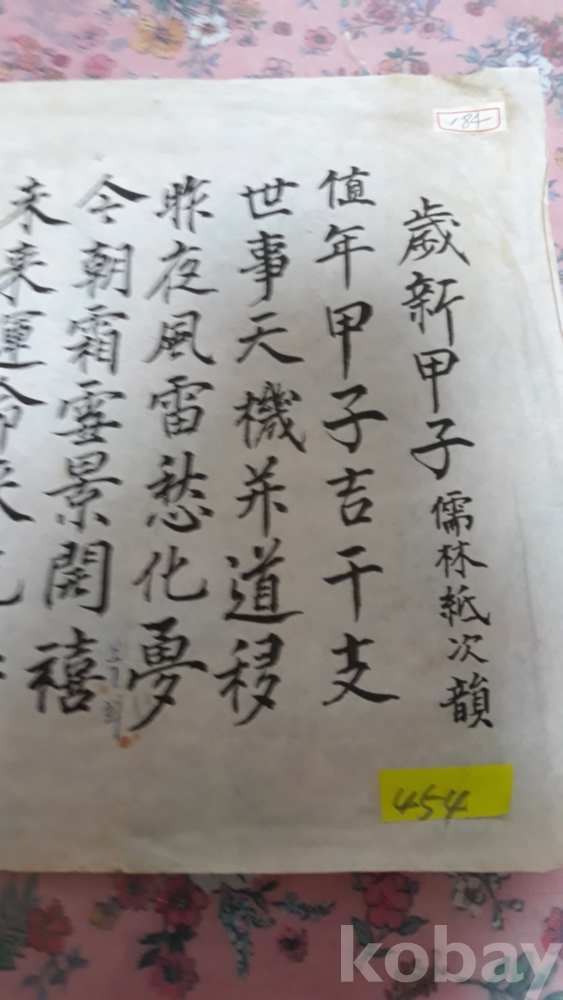 184
歲新甲子 儒林紙次韻
值年甲子吉干支
世事天機并道移
昨夜風雷愁化夢
今朝霜雪景開禧
未来運命
454
kobay